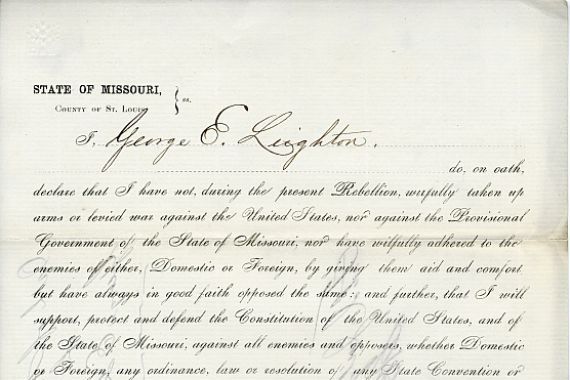 STATE OF MISSOURI, } ss.
COUNTY OF ST. LOUIS
I, George E. Leighton,
do, on oath,
declare that I have not, during the present Rebellion, wilfully taken up
arms or levied war against the United States, nor against the Provisional
Government of the State of Missouri, nor have wilfully adhered to the
enemies of either, Domestic or Foreign, by giving them aid and comfort,
but have always in good faith opposed the same; and further, that I will
support, protect and defend the Constitution of the United States, and of
the State of Missouri, against all enemies and opposers, whether Domestic
or Foreign, any ordinance, law or resolution of any State Convention or